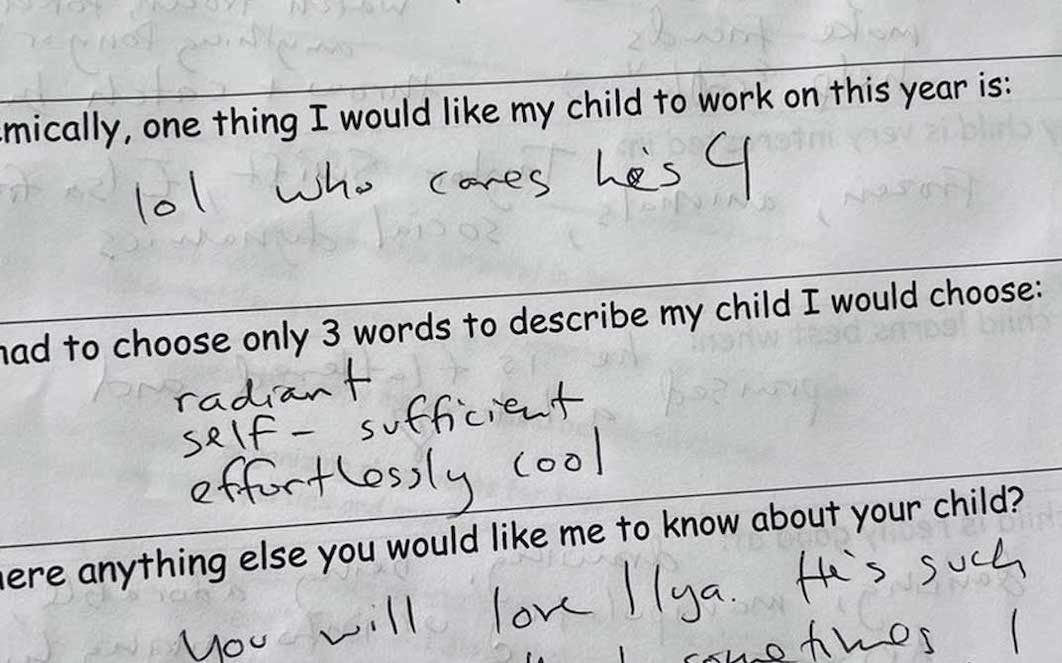 mically, one thing I would like my child to work on this year is:
lol who cares he's 4
had to choose only 3 words to describe my child I would choose:
radiant
self-sufficient
effortlessly cool
here anything else you would like me to know about your child?
You will love Ilya. He's such
sometimes I